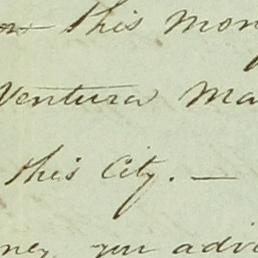 this mon
Ventura Ma
this City. —
ney you advi